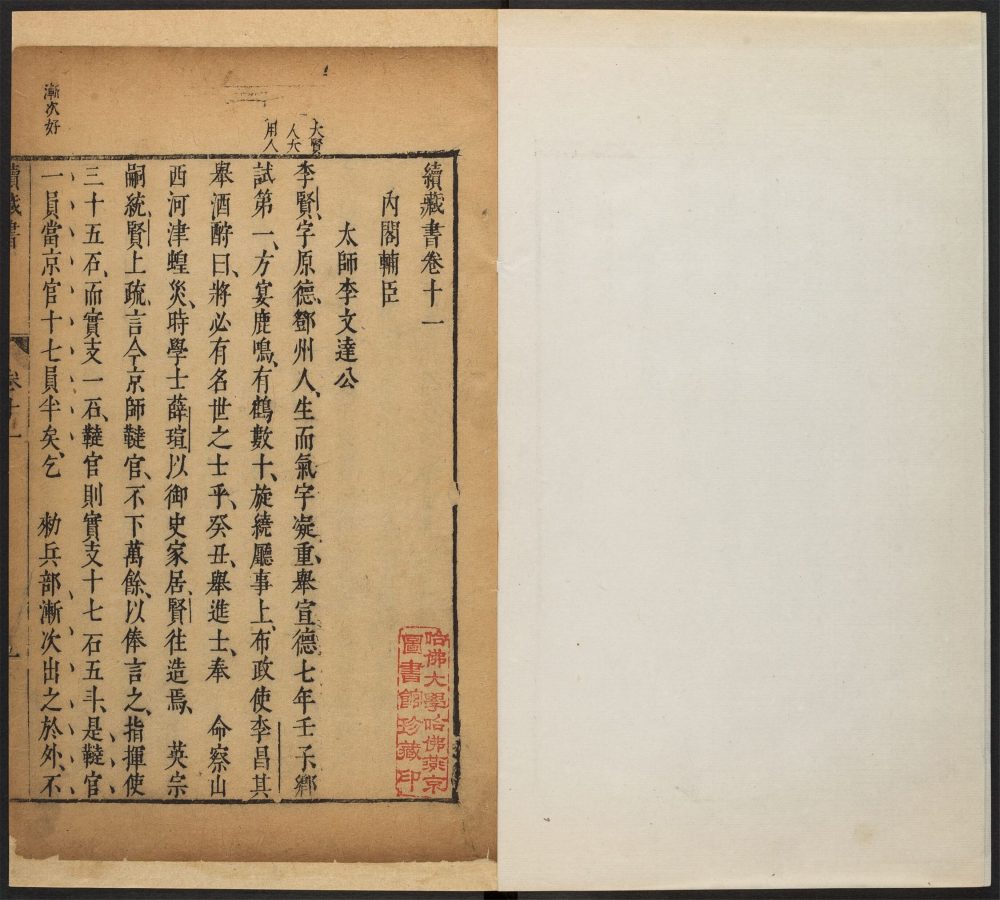 續藏書卷十一
內閣輔臣
太師李文達公
大賢
人大
用人
李賢、字原德、鄧州人、生而氣宇凝重、舉宣德七年壬子鄉
試第一、方宴鹿鳴、有鶴數十、旋繞廳事上、布政使李昌其
舉酒酹曰、將必有名世之士乎、癸丑、舉進士、奉 命察山
西河津蝗災、時學士薛瑄以御史家居、賢往造焉、 英宗
嗣統、賢上疏、言今京師韃官、不下萬餘、以俸言之、指揮使
三十五石、而實支一石、韃官則實支十七石五斗、是韃官
一員當京官十七員半矣、乞 勑兵部漸次出之於外、不
漸次好
續藏書
卷十一
哈佛大學哈佛燕京
圖書館珍藏印